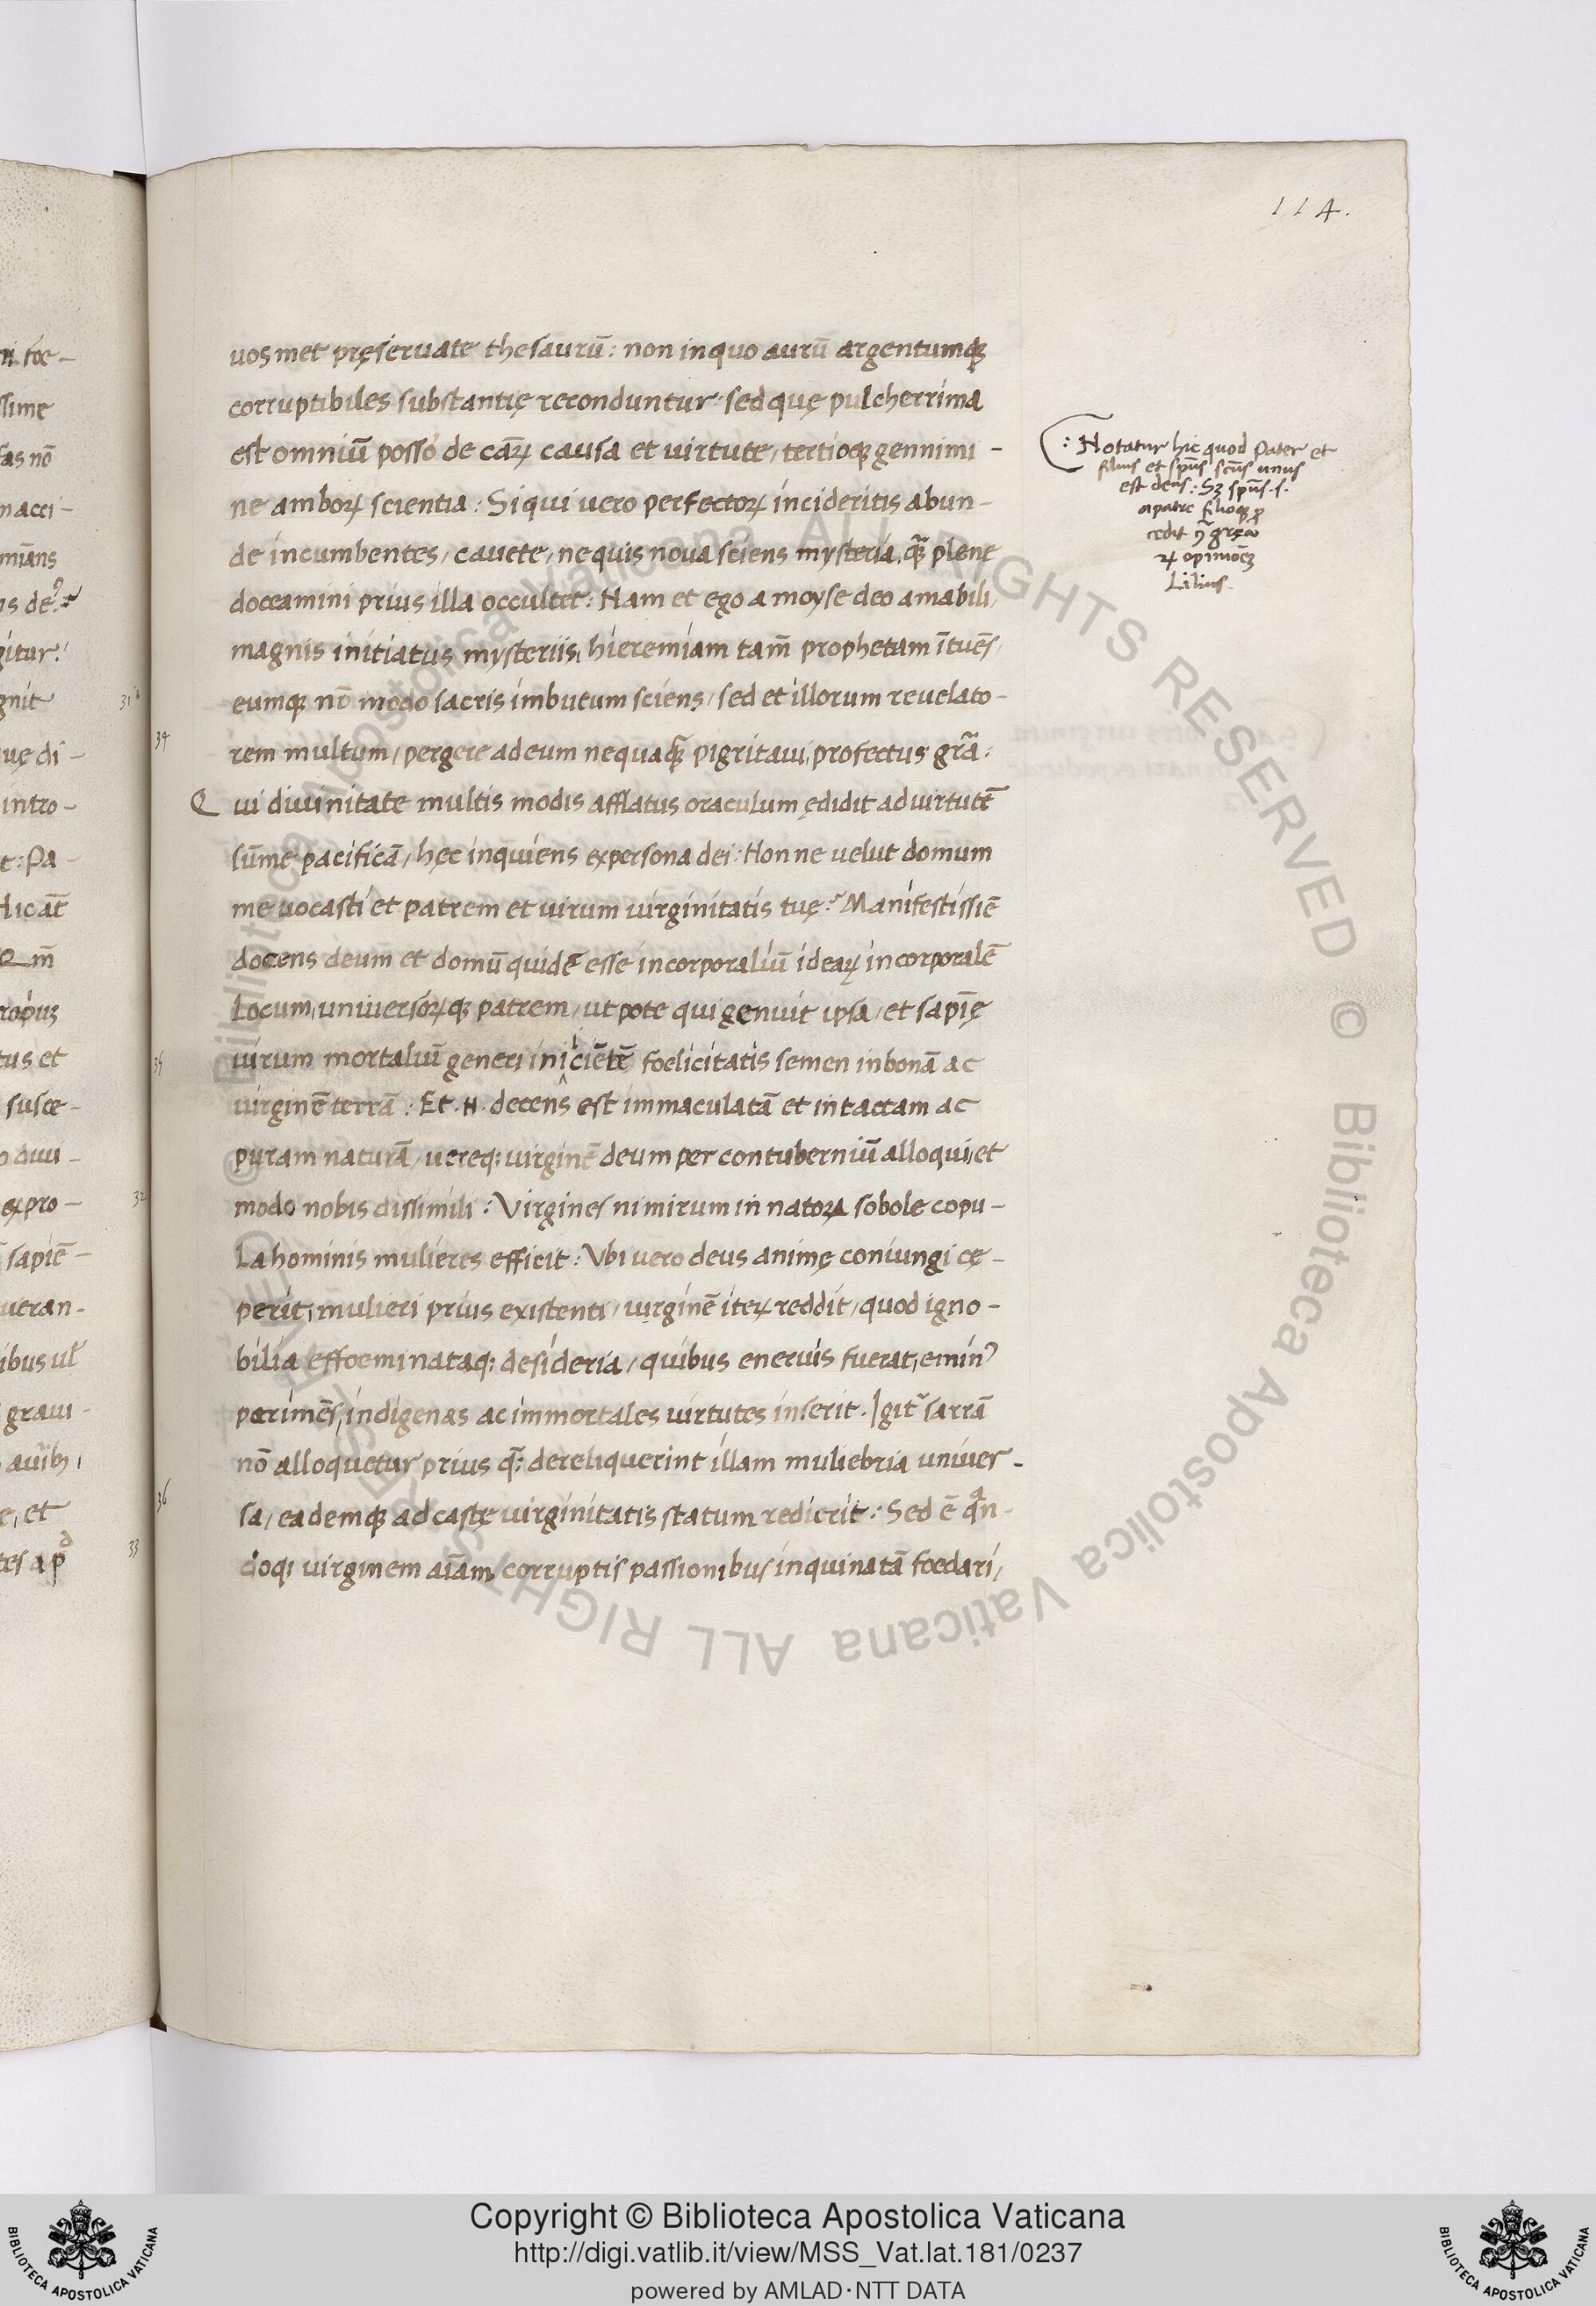 114.
uosmet pręseruate thesaurū: non in quo aurū argentumqȝ
corruptibiles substantię reconduntur: sed quę pulcherrima
est omniū posso de caꝝ causa et uirtute, tertioqȝ gennimi-
ne amboꝝ scientia: Si qui uero perfectoꝝ incideritis abun-
de incumbentes, cauete, ne quis noua sciens mysteria, q̄ȝ plene
doceamini prius illa occultet: Nam et ego a moyse deo amabili,
magnis initiatus mysteriis, hieremiam tam̄ prophetam ītuēs,
eumqȝ nō modo sacris imbutum sciens, sed et illorum reuelato-
34
rem multum, pergere ad eum nequaq̄ȝ pigritaui, profectus gr̄a:
Qui diuinitate multis modis afflatus oraculum ędidit ad uirtutē
sūme pacificā, hęc inquiens ex persona dei: Nonne uelut domum
me uocasti et patrem et uirum uirginitatis tuę? Manifestissiē
docens deum et domū quidē esse incorporaliū ideaꝝ incorporalē
Locum, uniuersoꝝqȝ patrem, utpote qui genuit ipsa, et sapīę
35
uirum mortaliū generi iniiciētē foelicitatis semen in bonā ac
uirginē terrā: Et .N. decens est immaculatā et intactam ac
puram naturā, uereq: uirginē deum per contuberniū alloqui, et
modo nobis dissimili: Virgines nimirum in natoꝝ sobole copu-
La hominis mulieres efficit: Vbi uero deus animę coniungi cę-
perit, mulieri prius existenti, uirginē iteꝝ reddit, quod igno-
bilia effoeminataq: desideria, quibus eneruis fuerat, e min⁹
perimēs, indigenas ac immortales uirtutes inserit. Igit̄ sarrā
nō alloquetur prius q̄: dereliquerint illam muliebria uniuer-
36
sa, eademqȝ ad castę uirginitatis statum redierit: Sed ē qn̄-
doq; uirginem aīam corruptis passionibus inquinatā foedari,
: Notatur hic quod Pater et
filius et sp̄us sc̄us unus
est deus: Sȝ sp̄us .s.
a patre filioqȝ ꝓ
cedit ꝯ̄ gręco
ꝝ opinionēȝ
Lilius.
Copyright © Biblioteca Apostolica Vaticana
http://digi.vatlib.it/view/MSS_Vat.lat.181/0237
powered by AMLAD·NTT DATA
BIBLIOTECA APOSTOLICA VATICANA
BIBLIOTECA APOSTOLICA VATICANA
© Biblioteca Apostolica Vaticana ALL RIGHTS RESERVED © Biblioteca Apostolica Vaticana ALL RIGHTS RESERVED